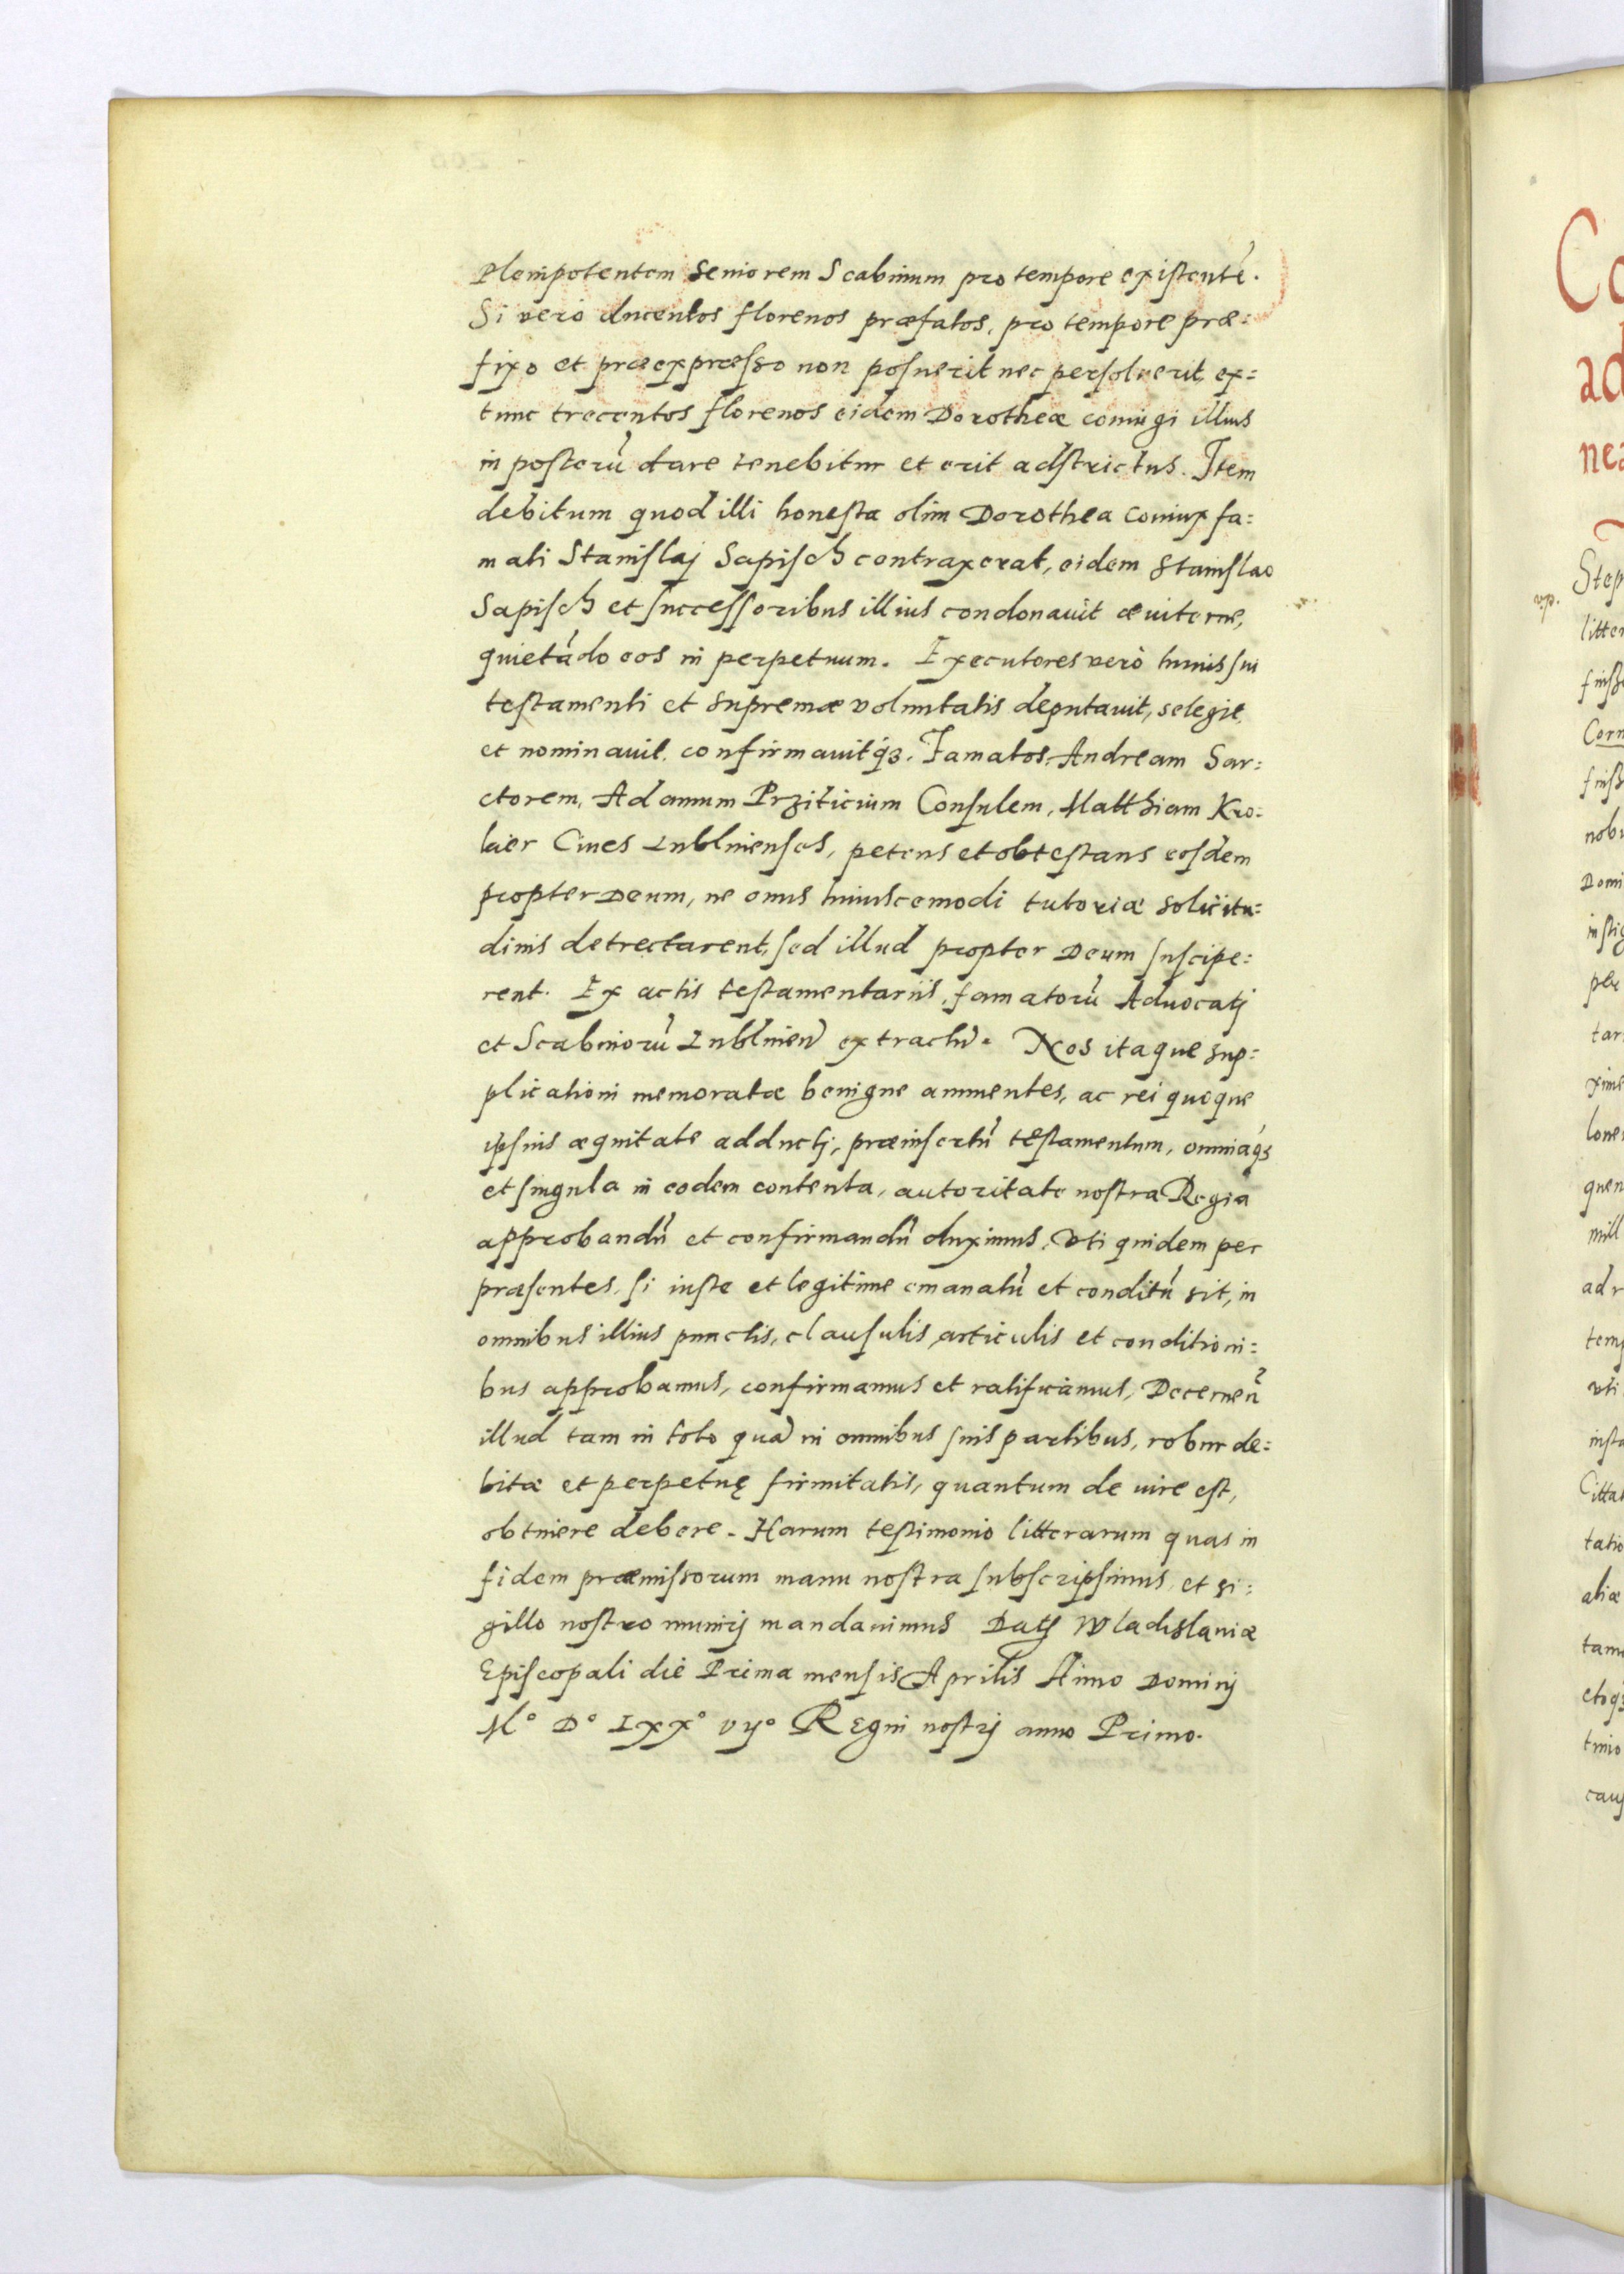 Plenipotentem Seniorem Scabinum pro tempore existentē.
Si verò ducentos florenos præfatos, pro tempore præ:
fixo et præexpresso non posuerit nec persoluerit, ex:
tunc trecentos florenos eidem Dorotheæ coniugi illius
in posterū dare tenebitur et erit adstrictus. Item
debitum quod illi honesta olim Dorothea coniux fa:
mati Stanislaj Sapisch contraxerat, eidem Stanislao
Sapisch et successoribus illius condonauit æuiterne,
quietādo eos in perpetuum. Executores verò huius sui
testamenti et supremæ voluntatis deputauit, selegit,
et nominauit, confirmauitqȝ. Famatos, Andream Sar:
ctorem, Adamum Prziticium Consulem, Matthiam Kro:
lier Ciues Lublinenses, petens et obtestans eosdem
propter Deum, ne onus huiuscemodi tutoriæ solicitu:
dinis detrectarent, sed illud propter Deum suscipe:
rent. Ex actis testamentariis, famatorū Aduocatj
et Scabinorū Lublinen̄ extractū. Nos itaque sup:
plicationi memoratæ benigne annuentes, ac rei quoque
ipsius æquitate adductj, præinsertū testamentum, omniaqȝ
et singula in eodem contenta, autoritate nostra Regia
approbandū et confirmandū duximus, Vti quidem per
præsentes, si iuste et legitime emanatū et conditū sit, in
omnibus illius punctis, clausulis, articulis et conditioni:
bus approbamus, confirmamus et ratificamus, Decernen̄
illud tam in toto quā in omnibus suis partibus, robur de:
bitæ et perpetuę firmitatis, quantum de iure est,
obtinere debere. Harum testimonio litterarum quas in
fidem præmissorum manu nostra subscripsimus, et si:
gillo nostro munirj mandauimus Datj Wladislauiæ
Episcopali die Prima mensis Aprilis Anno Dominj
M° D° Lxx° vij° Regni nostrj anno Primo.
vp.
Co
ad
nea
Step
litter
Corn
nobi
Domi
instig
per
tar
xime
lone
quen
mill
ad r
temp
vti
insta
Cittat
tatio
aliæ
tame
etoqȝ
caus